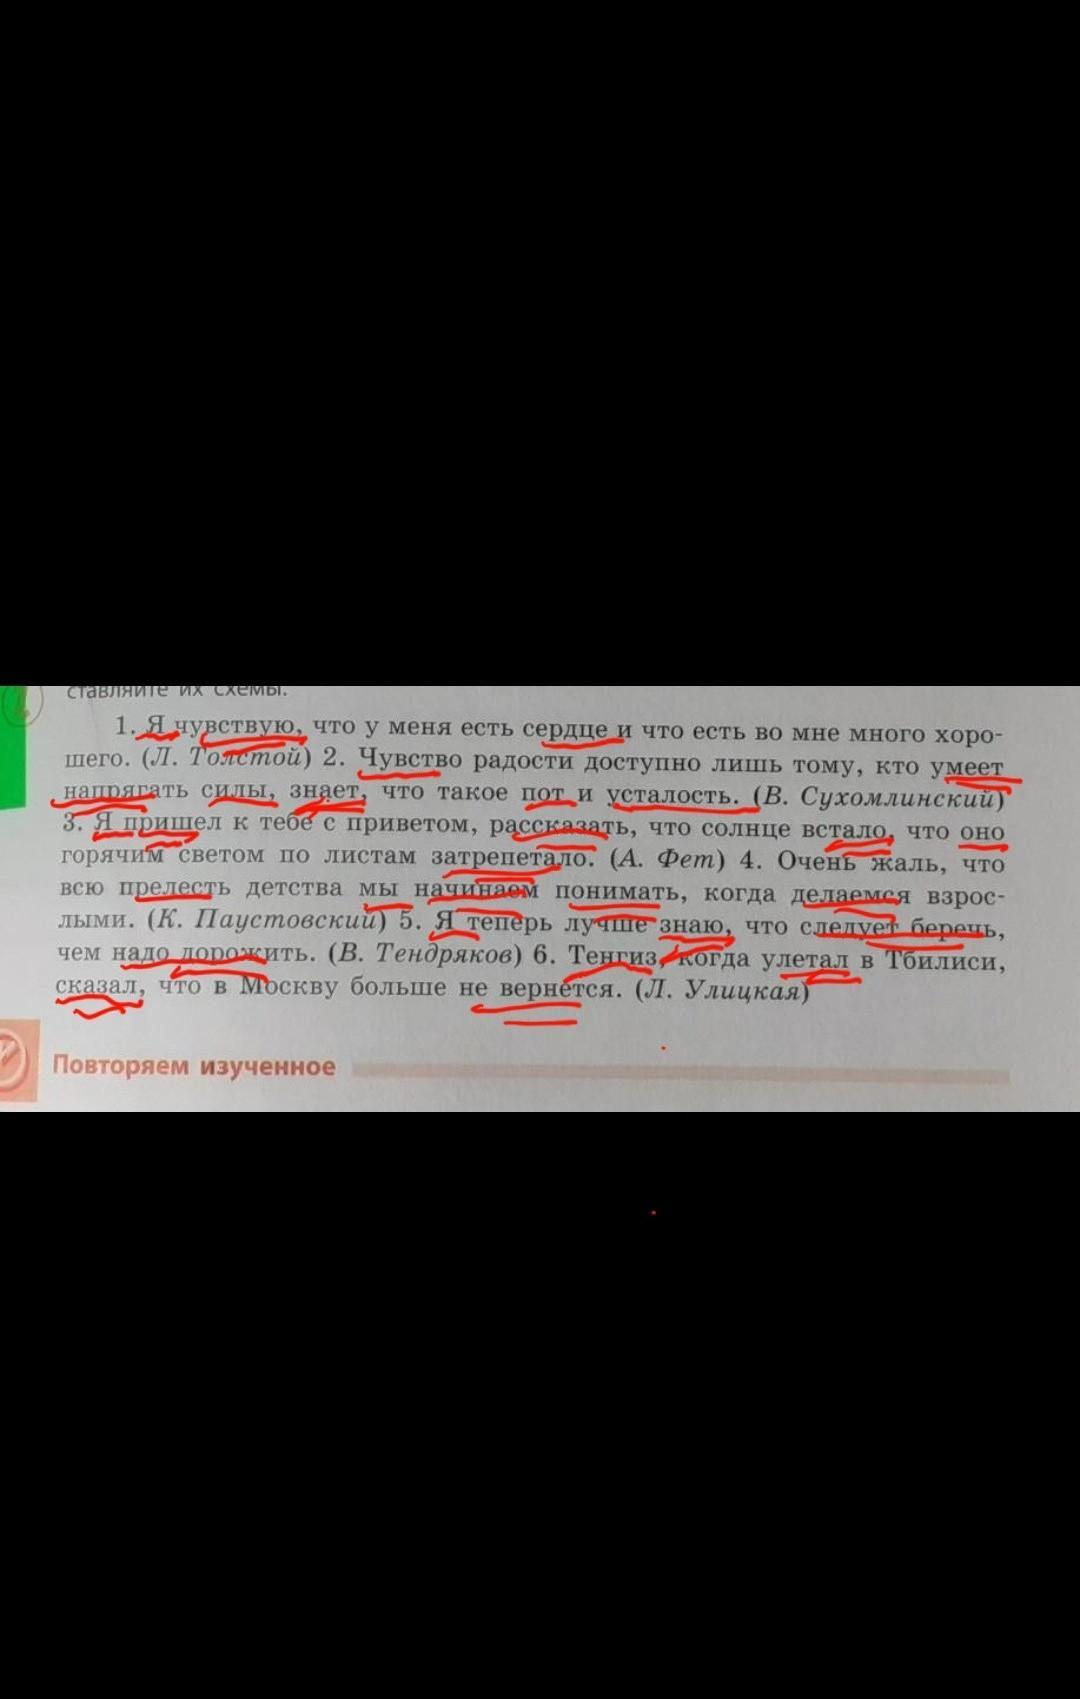 ставляйте их схемы.
1. Я чувствую, что у меня есть сердце и что есть во мне много хоро-
шего. (Л. Толстой) 2. Чувство радости доступно лишь тому, кто умеет
напрягать силы, знает, что такое пот и усталость. (В. Сухомлинский)
3. Я пришел к тебе с приветом, рассказать, что солнце встало, что оно
горячим светом по листам затрепетало. (А. Фет) 4. Очень жаль, что
всю прелесть детства мы начинаем понимать, когда делаемся взрос-
лыми. (К. Паустовский) 5. Я теперь лучше знаю, что следует беречь,
чем надо дорожить. (В. Тендряков) 6. Тенгиз, когда улетал в Тбилиси,
сказал, что в Москву больше не вернется. (Л. Улицкая)
Повторяем изученное